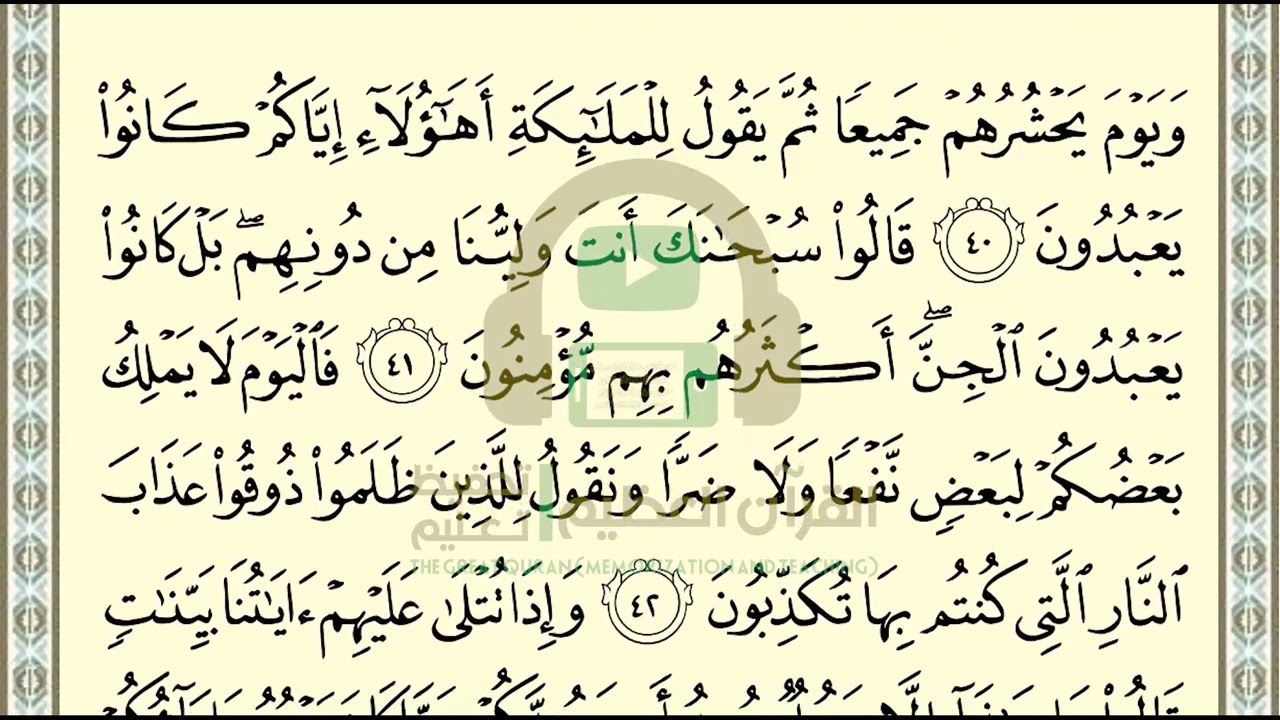 وَيَوْمَ يَحْشُرُهُمْ جَمِيعًا ثُمَّ يَقُولُ لِلْمَلَٰٓئِكَةِ أَهَٰٓؤُلَآءِ إِيَّاكُمْ كَانُوا۟
يَعْبُدُونَ ٤٠ قَالُوا۟ سُبْحَٰنَكَ أَنتَ وَلِيُّنَا مِن دُونِهِم ۖ بَلْ كَانُوا۟
يَعْبُدُونَ ٱلْجِنَّ ۖ أَكْثَرُهُم بِهِم مُّؤْمِنُونَ ٤١ فَٱلْيَوْمَ لَا يَمْلِكُ
بَعْضُكُمْ لِبَعْضٍ نَّفْعًا وَلَا ضَرًّا وَنَقُولُ لِلَّذِينَ ظَلَمُوا۟ ذُوقُوا۟ عَذَابَ
القرآن العظيم | تحفيظ تعليم
THE GREAT QURAN (MEMORIZATION AND TEACHING)
ٱلنَّارِ ٱلَّتِى كُنتُم بِهَا تُكَذِّبُونَ ٤٢ وَإِذَا تُتْلَىٰ عَلَيْهِمْ ءَايَٰتُنَا بَيِّنَٰتٍ